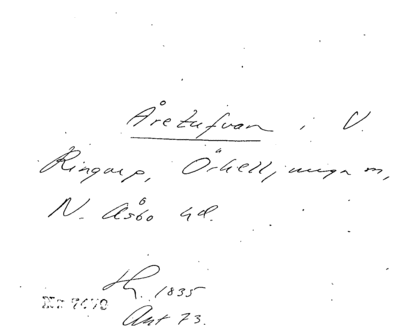 Åretufvan i V.
Ringarp, Örkelljunga sn,
N. Åsbo hd.
1835
Ant 73.